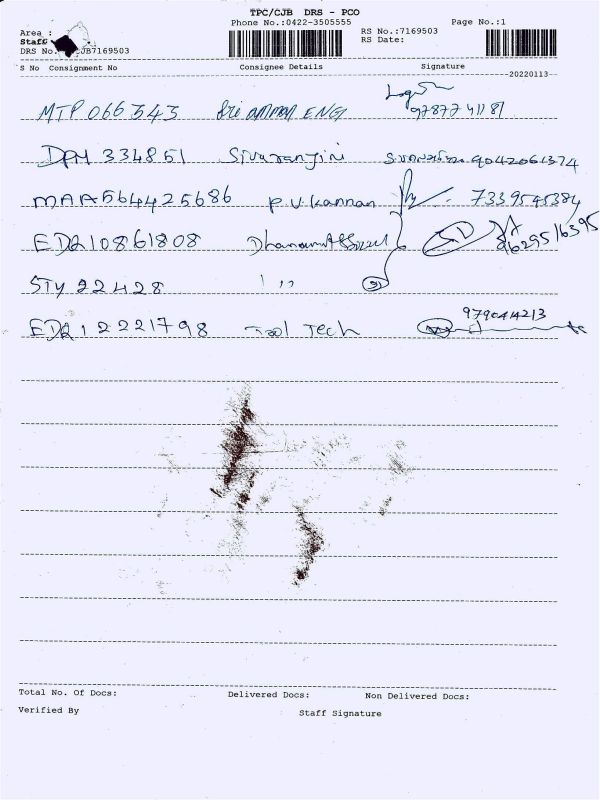 TPC/CJB DRS - PCO
Phone No.:0422-3505555 Page No.:1
Area : RS No.:7169503
Staff RS Date:
DRS No. CJB7169503
S No Consignment No Consignee Details Signature
20220113
MTP 066343 Sri Amman ENG 97877 41181
DPM 334851 Sivaranjini 9042061374
MAA564425686 P.V. Kannan 7339545384
EDQ10861808 8629516395
STY 22428 ,,
EDQ12221798 Tool Tech 9790414213
Total No. Of Docs: Delivered Docs: Non Delivered Docs:
Verified By Staff Signature